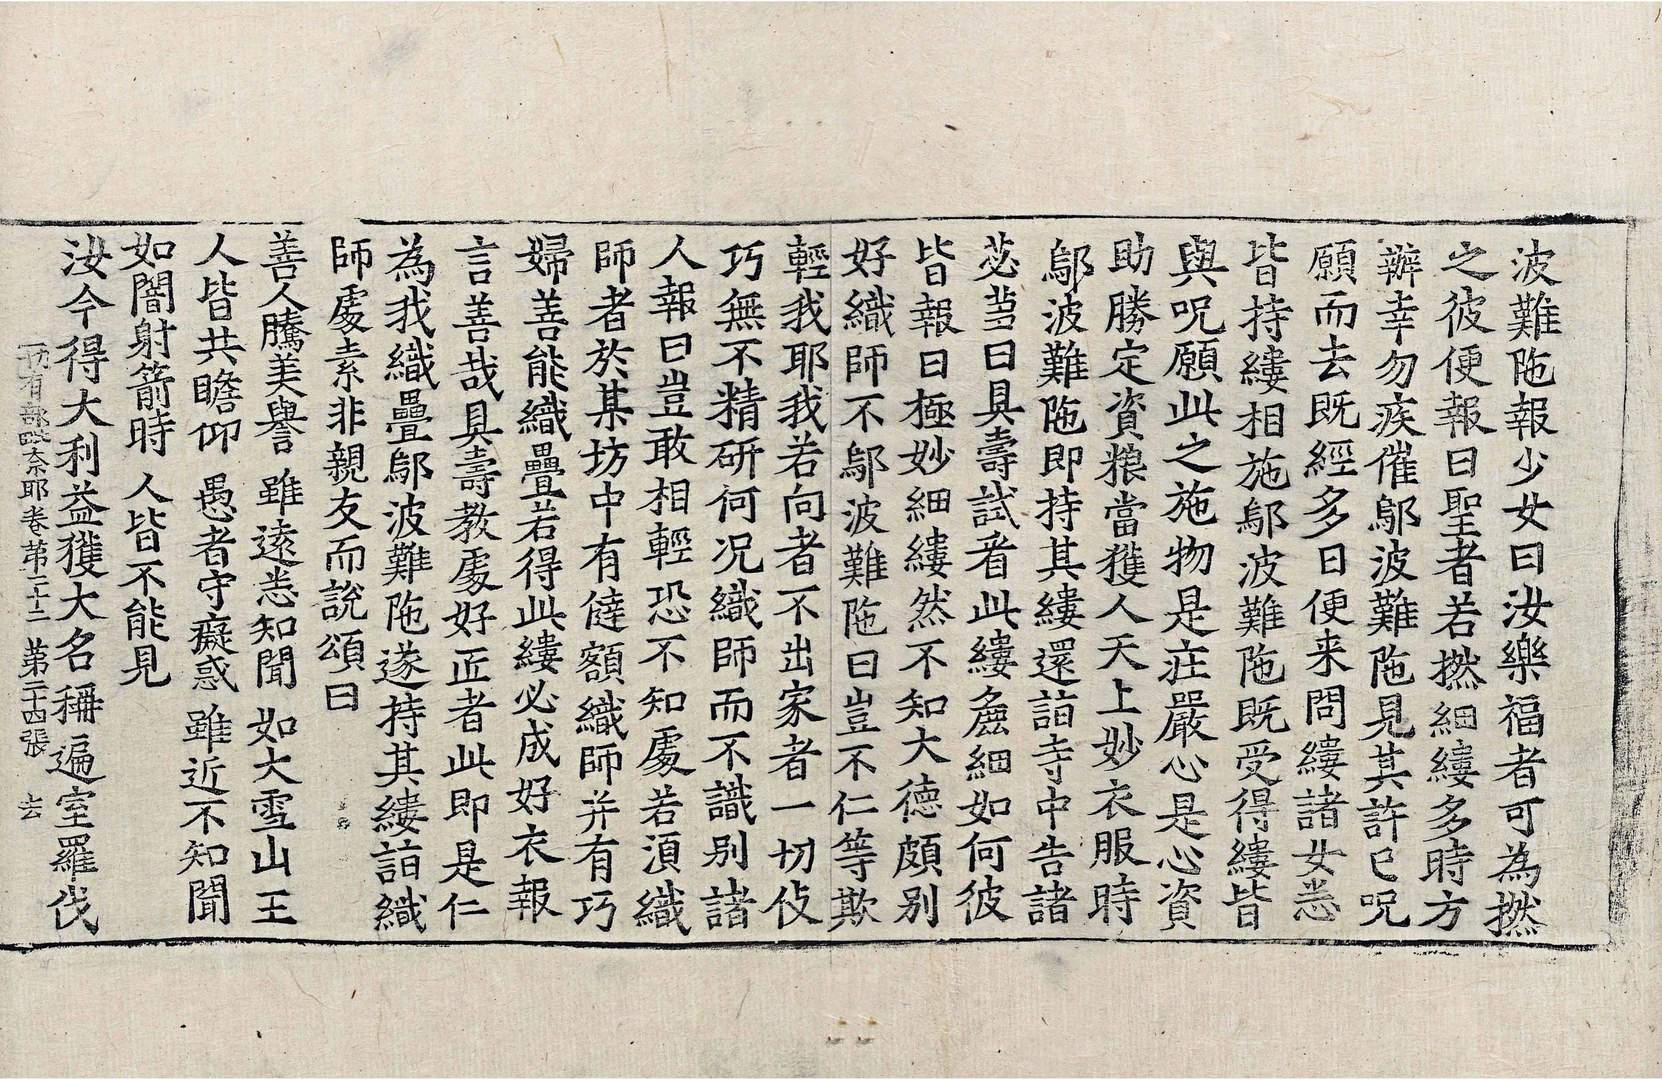 波難陁報少女曰汝樂福者可為撚
之彼便報曰聖者若撚細縷多時方
辦幸勿疾催鄔波難陁見其許已呪
願而去既經多日便来問縷諸女悉
皆持縷相施鄔波難陁既受得縷皆
與呪願此之施物是荘嚴心是心資
助勝定資粮當獲人天上妙衣服時
鄔波難陁即持其縷還詣寺中告諸
苾芻曰具壽試看此縷麁細如何彼
皆報曰極妙細縷然不知大德頗別
好織師不鄔波難陁曰豈不仁等欺
輕我耶我若向者不出家者一切伎
巧無不精研何况織師而不識別諸
人報曰豈敢相輕恐不知處若湏織
師者於某坊中有㒓額織師并有巧
婦善能織疊若得此縷必成好衣報
言善哉具壽教處好匠者此即是仁
為我織疊鄔波難陁遂持其縷詣織
師處素非親友而說頌曰
善人騰美譽 雖逺悉知聞 如大雪山王
人皆共瞻仰 愚者守癡惑 雖近不知聞
如闇射箭時 人皆不能見
汝今得大利益獲大名稱遍室羅伐
一切有部毗奈耶卷第二十二 第二十四張 去